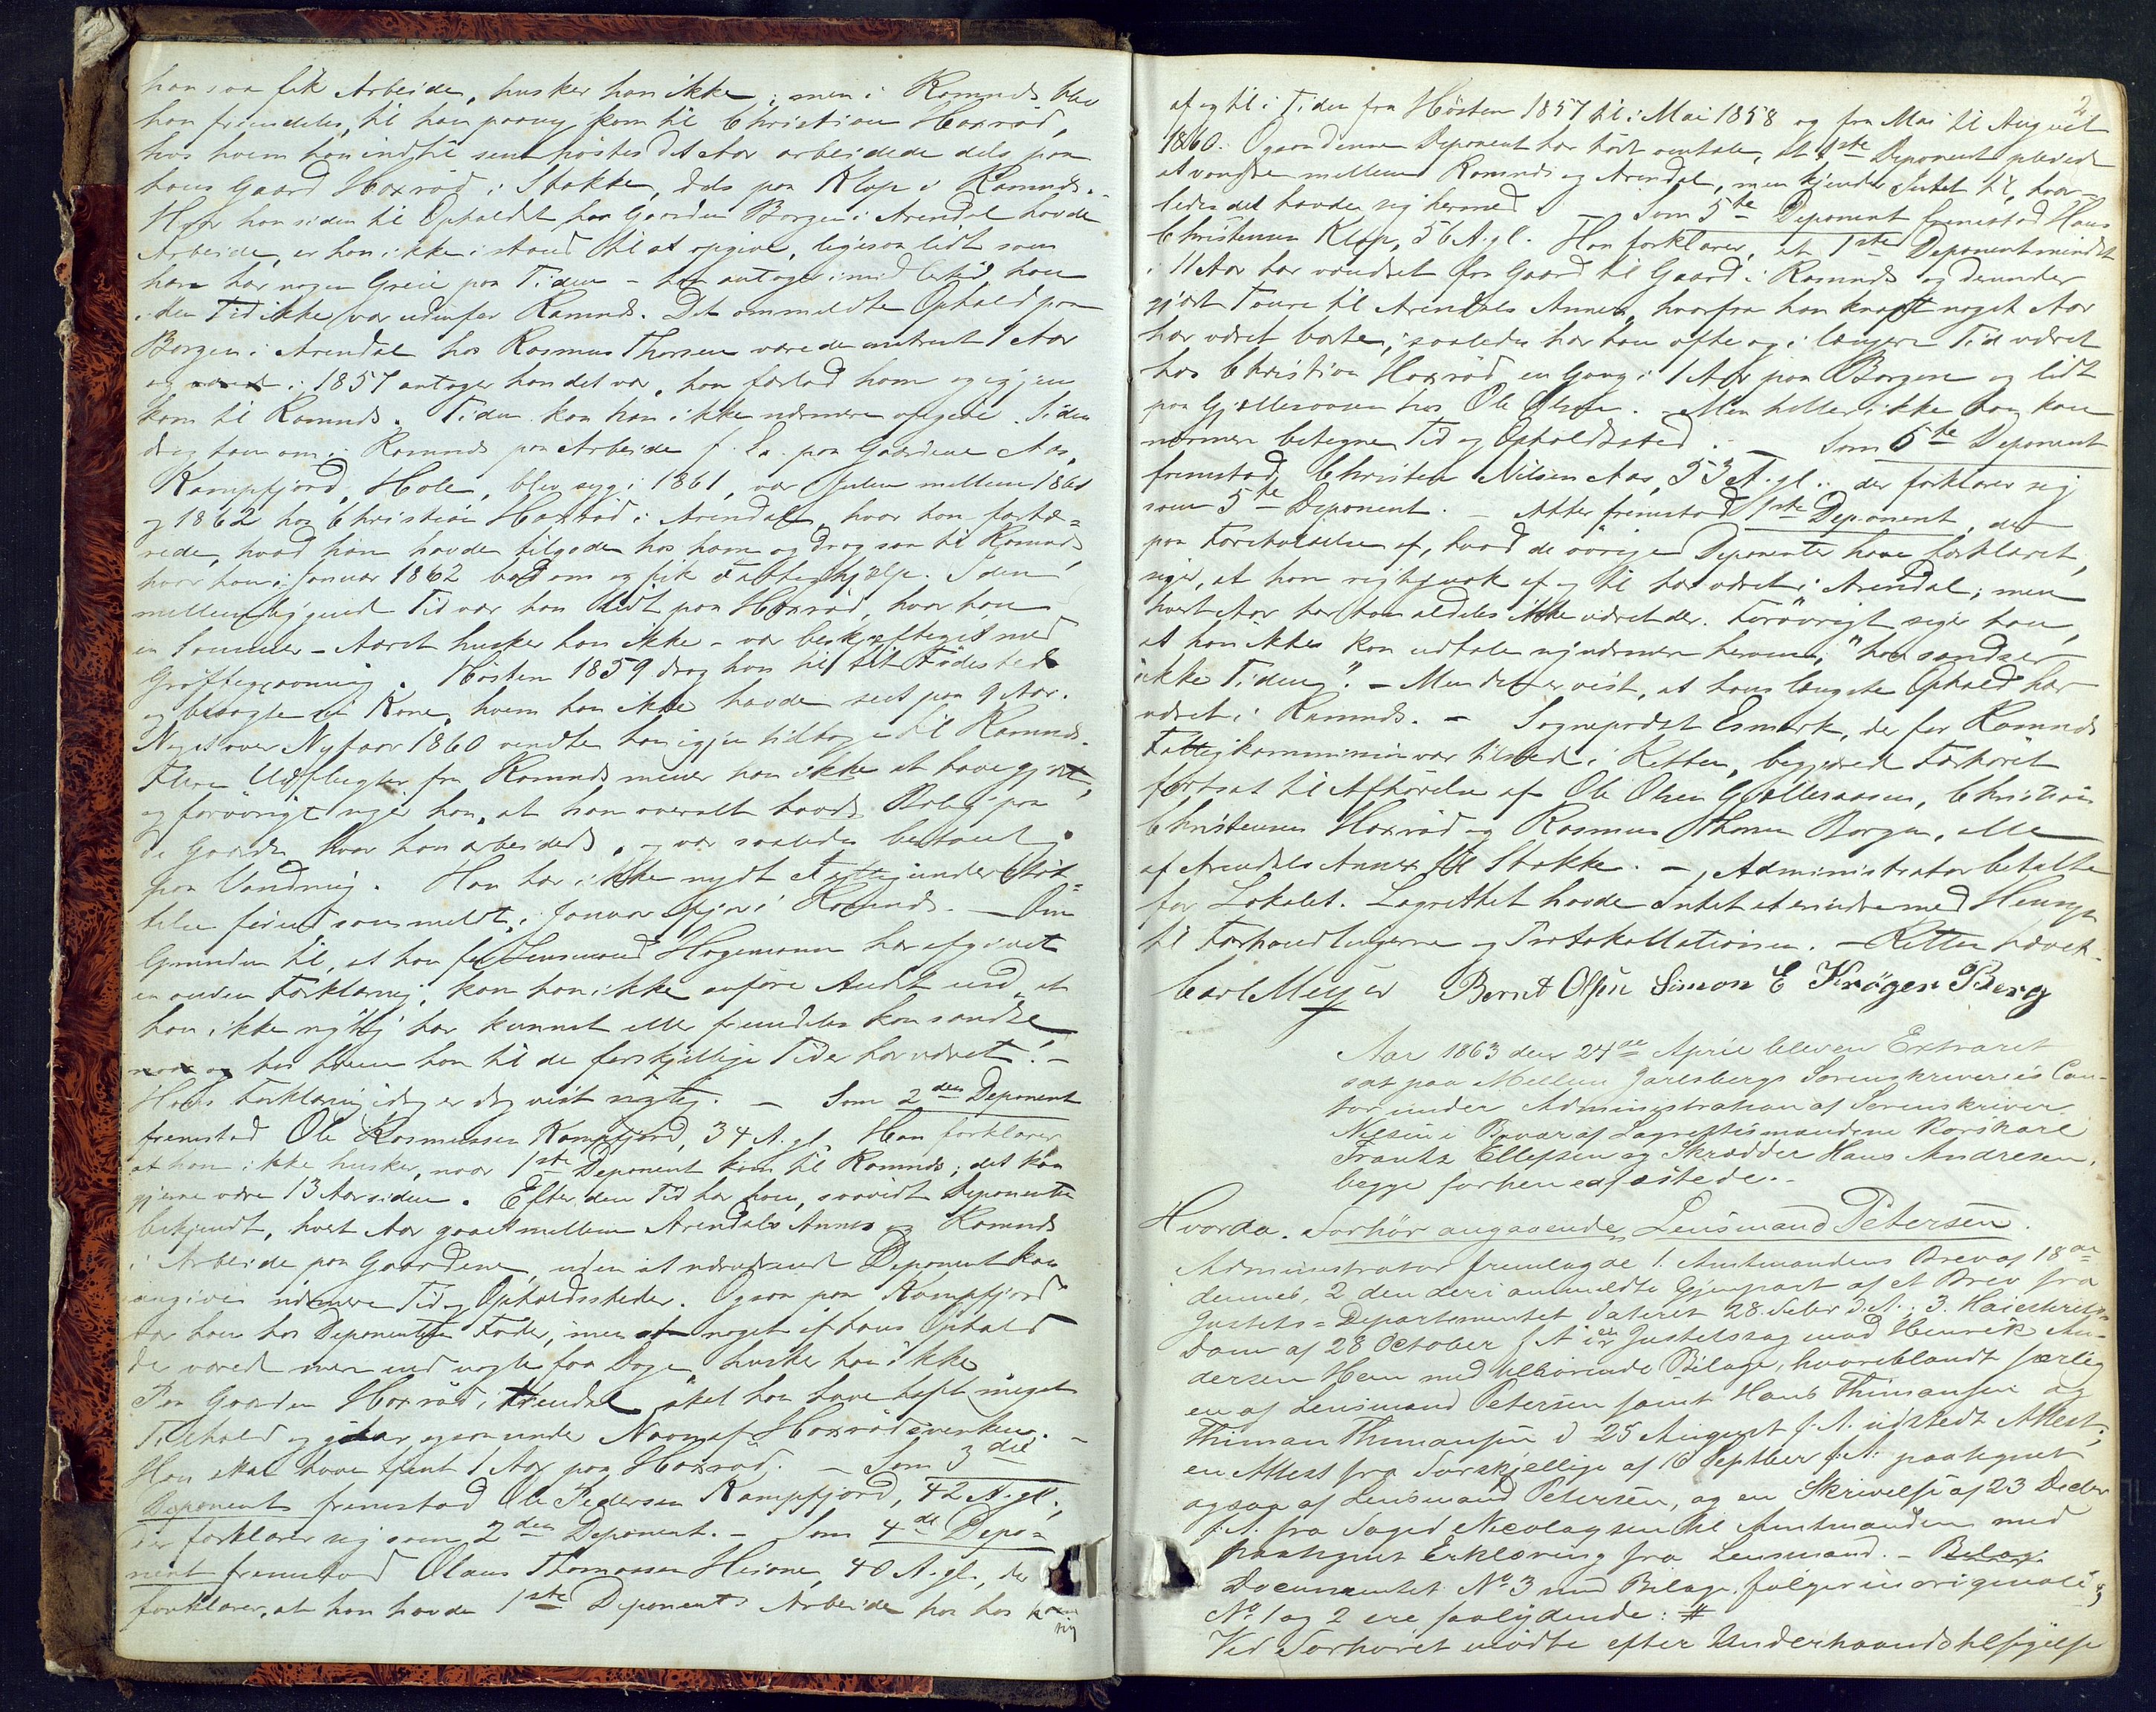 han saa fik Arbeide, husker han ikke; men i Ramnæs blev
han fremdeles, til han paany kom til Christian Haxrød,
hos hvem han indtil sent høstes det Aar arbeidede dels paa
hans Gaard Haxrød i Stokke, dels paa Klop i Ramnæs.
Hvor han siden til Opholdet paa Gaarden Borgen i Arendal havde
Arbeide, er han ikke istand til at opgive, ligesaa lidt som
han har nogen Greie paa Tiden – han antager imidlertid han
i den Tid ikke var udenfor Ramnæs. Det ommeldte Ophold paa
Borgen i Arendal hos Rasmus Thorsen varede omtrent 1 Aar
og i 1857 antager han det var, han forlod ham og igjen
kom til Ramnæs. Tiden kan han ikke nærmere opgive. Siden
drog han om i Ramnæs paa Arbeide f. Ex. paa Gaardene Aas,
Kampfjord, Hole, blev syg i 1861, var Julen mellem 1861
og 1862 hos Christian Haxrød i Arendal, hvor han fortæ-
rede, hvad han havde tilgode hos ham og drog saa til Ramnæs
hvor han i Januar 1862 bad om og fik Fattighjælp. I den
mellemliggende Tid var han lidt paa Haxrød, hvor han
en Sommer – Aaret husker han ikke – var beskjæftiget med
Grøftegravning. Høsten 1859 drog han til sit Fødested
og besøgte sin Kone, hvem han ikke havde seet paa 9 Aar.
Noget over Nytaar 1860 vendte han igjen tilbage til Ramnæs.
Flere Udflugter fra Ramnæs mener han ikke at have gjort,
og forøvrigt siger han, at han overalt havde Bolig paa
de Gaarde hvor han arbeidede, og var saaledes bestandig
paa Vandring. Han har ikke nydt Fattigunderstøt-
telse førend som meldt i Januar ifjor i Ramnæs. – Om
Grunden til, at han for Lensmand Hagemann har afgivet
en anden Forklaring, kan han ikke anføre Andet end, at
han ikke rigtig har kunnet eller fremdeles kan sandse
naar og hos hvem han til de forskjellige Tider har været. –
Hans Forklaring idag er dog vist rigtig. – Som 2den Deponent
fremstod Ole Rasmussen Kampfjord, 34 A. gl. Han forklarer
at han ikke husker, naar 1ste Deponent kom til Ramnæs; det kan
gjerne være 13 Aar siden. Efter den Tid har han, saavidt Deponenten
bekjendt, hvert Aar gaaet mellem Arendals Annex og Ramnæs
i Arbeide paa Gaardene, uden at nærværende Deponent kan
angive nærmere Tid og Opholdssteder. Ogsaa paa Kampfjord
var han hos Deponentens Fader, men at noget af hans Ophold
der varede mer end nogle faa Dage husker han ikke
Paa Gaarden Haxrød i Arendal skal han have havt meget
Tilhold og gaar ogsaa under Navn af Haxrødsvensken. –
Han skal have tjent 1 Aar paa Haxrød. – Som 3die
Deponent fremstod Ole Pedersen Kampfjord, 42 A. gl.,
der forklarer sig som 2den Deponent. – Som 4de Depo-
nent fremstod Olaus Thomassen Heiane, 40 A. gl., der
forklarer, at han havde 1ste Deponent i Arbeide hos
sig
2
af og til i Tiden fra Høsten 1857 til i Mai 1858 og fra Mai til August
1860. Ogsaa denne Deponent har hørt omtale, at 1ste Deponent pleiede
at vandre mellem Ramnæs og Arendal, men kjender Intet til, hvor-
ledes det havde sig hermed. Som 5te Deponent fremstod Hans
Christensen Klop, 56 A. gl. Han forklarer, at 1ste Deponent mindst
i 11 Aar har vandret fra Gaard til Gaard i Ramnæs og derunder
gjort Toure til Arendals Annex, hvorfra han knapt noget Aar
har været borte; saaledes har han ofte og i længere Tid været
hos Christian Haxrød en Gang i 1 Aar paa Borgen og lidt
paa Gjelleraasen hos Ole Olsen. – Men heller ikke han kan
nærmere betegne Tid og Opholdssted. – Som 6te Deponent
fremstod Christen Nilsen Aas, 53 A. gl. der forklarer sig
som 5te Deponent. – Atter fremstod 1ste Deponent, der
paa Foreholdelse af, hvad de øvrige Deponenter have forklaret,
siger, at han rigtignok af og til har været i Arendal; men
hvert Aar har han aldeles ikke været der. Forøvrigt siger han,
at han ikke kan udtale sig nærmere herom; "han sandser
ikke Tiden". – Men det er vist, at hans længste Ophold har
været i Ramnæs. – Sogneprest Esmark, der for Ramnæs
Fattigkommission var tilstede i Retten, begjærede Forhøret
fortsat til Afhørelse af Ole Olsen Gjelleraasen, Christian
Christensen Haxrød og Rasmus Thorsen Borgen, alle
af Arendals Annex til Stokke. – Administrator betalte
for Lokalet. Lagrettet havde Intet at erindre med Hensyn
til Forhandlingerne og Protokollationen. – Retten hævet.
Carl Meyer Bernt Olsen Simon E Krøger Berg
Aar 1863 den 24de April bleven Extraret
sat paa Mellem Jarlsbergs Sorenskriveries Con-
tor under Administration af Sorenskriver
Nilsen i Overvær af Lagrettesmændene Korskarl
Frantz Ellefsen og Skrædder Hans Andresen,
begge forhen edfæstede. –
Hvorda. Forhør angaaende Lensmand Petersen.
Administrator fremlagde 1. Amtmandens Brev af 18de
dennes, 2 den deri anmeldte Gjenpart af et Brev fra
Justits-Departementet dateret 28. Febr. d. A.; 3. Høiesterets-
Dom af 28 October f. A. i en Justitssag mod Henrik An-
dersen Hem med tilhørende Bilage, hvoriblandt særlig
en af Lensmand Petersen samt Hans Thimansen og
Thiman Thimansen d 25 August f. A. udstedt Attest;
en Attest fra Forskjellige af 6 Septber f. A. paategnet
ogsaa af Lensmand Petersen, og en Skrivelse af 23 Decbr
f. A. fra Foged Nicolaysen til Amtmanden med
paategnet Erklæring fra Lensmand. –
Documentet No 3 med Bilage følger in originali &
No 1 og 2 ere saalydende: #
Ved Forhøret mødte efter Underhaandstilsigelse